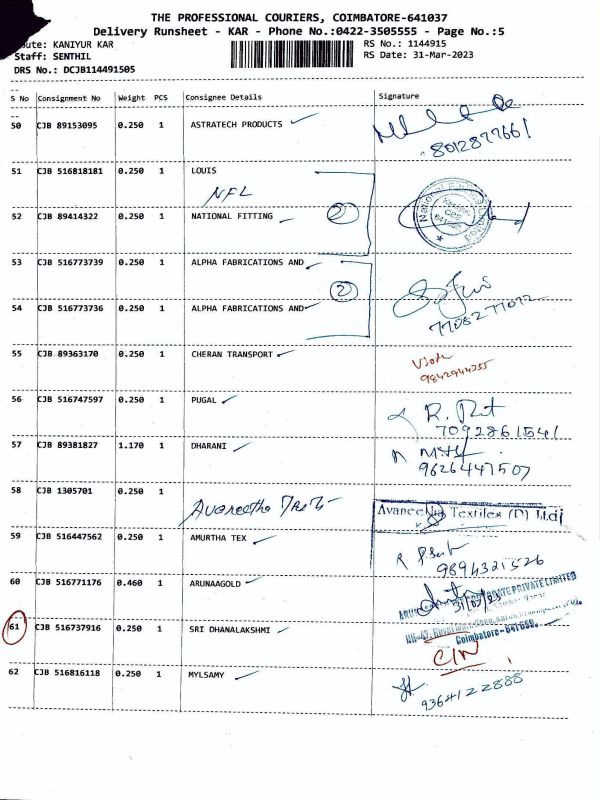 THE PROFESSIONAL COURIERS, COIMBATORE-641037
Delivery Runsheet - KAR - Phone No.:0422-3505555 - Page No.:5
Route: KANIYUR KAR
RS No.: 1144915
Staff: SENTHIL
RS Date: 31-Mar-2023
DRS No.: DCJB114491505
S No Consignment No Weight PCS Consignee Details Signature
50 CJB 89153095 0.250 1 ASTRATECH PRODUCTS
8012877661
51 CJB 516818181 0.250 1 LOUIS
NFL
52 CJB 89414322 0.250 1 NATIONAL FITTING 2
53 CJB 516773739 0.250 1 ALPHA FABRICATIONS AND
2
54 CJB 516773736 0.250 1 ALPHA FABRICATIONS AND
55 CJB 89363170 0.250 1 CHERAN TRANSPORT
9842944355
56 CJB 516747597 0.250 1 PUGAL
7092861541
57 CJB 89381827 1.170 1 DHARANI
9626447507
58 CJB 1305701 0.250 1
Avaneetha
Textiles (P) Ltd
59 CJB 516447562 0.250 1 AMURTHA TEX
9894321526
60 CJB 516771176 0.460 1 ARUNAAGOLD
PRIVATE LIMITED
61 CJB 516737916 0.250 1 SRI DHANALAKSHMI
Coimbatore-641659.
C/N
62 CJB 516816118 0.250 1 MYLSAMY
9364122888